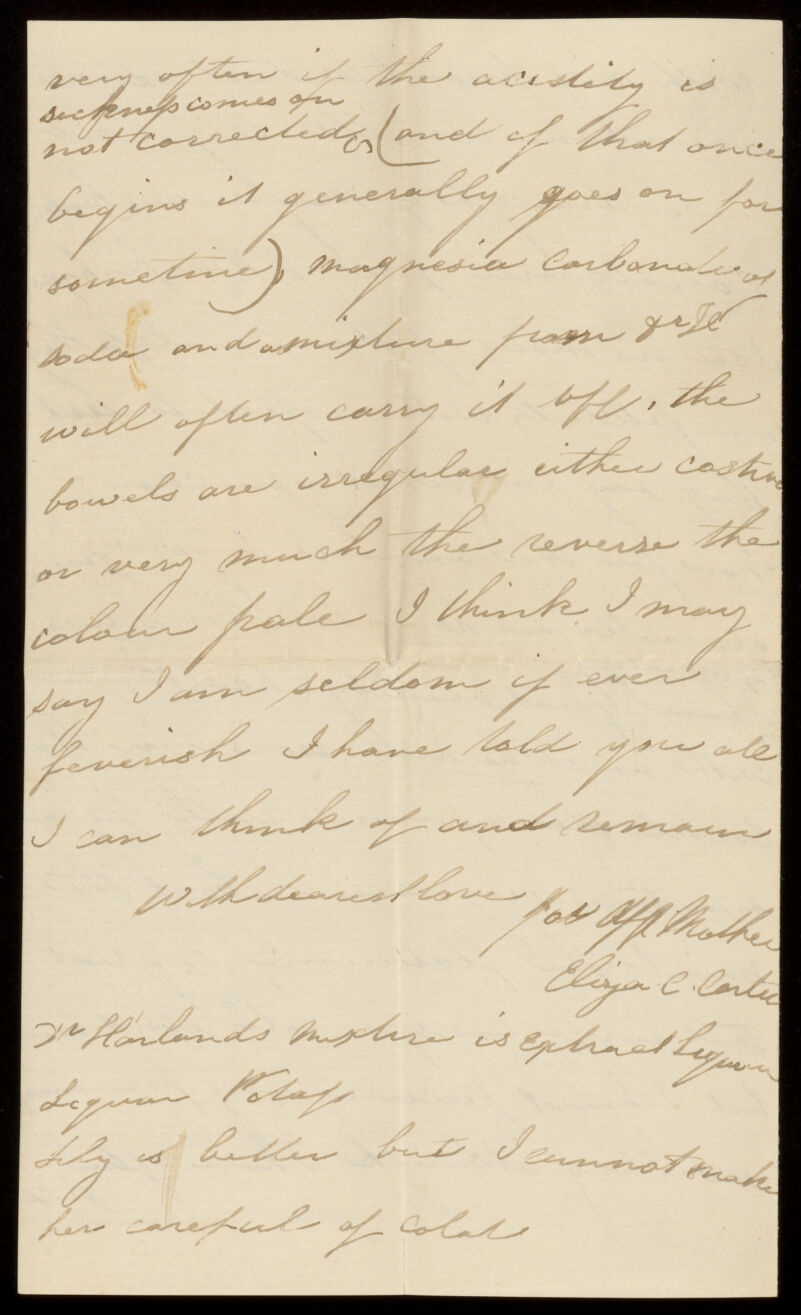 very often if the acidity is
sickness comes on
not corrected (and if that once
begins it generally goes on for
sometime) magnesia carbonate of
soda and a mixture from Dr H
will often carry it off, the
bowels are irregular either costive
or very much the reverse the
colour pale I think I may
say I am seldom if ever
feverish I have told you all
I can think of and remain
With dearest love
your Aff Mother
Eliza C. Carter
Dr Harlands mixture is Extract
Liquor Potass
Lily is better but I cannot make
her careful of